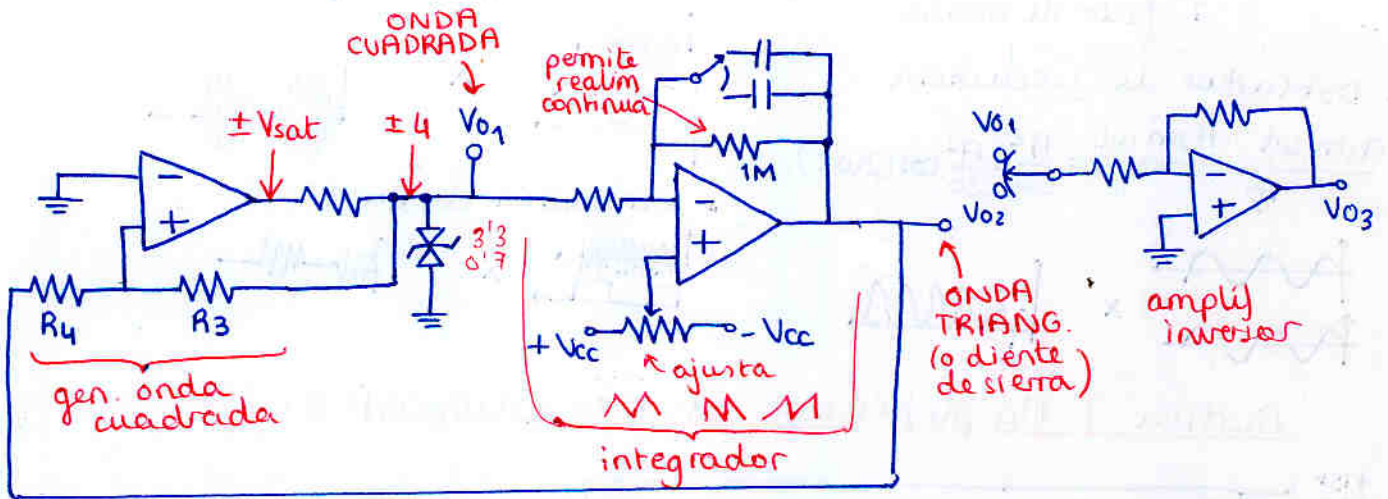 ONDA
CUADRADA
permite
realim
continua
± Vsat
± 4
VO1
1M
VO1
VO2
VO3
-
+
-
+
-
+
3'3
0'7
R4
R3
+ Vcc
- Vcc
ajusta
gen. onda
cuadrada
integrador
ONDA
TRIANG.
(o diente
de sierra)
amplif
inversor